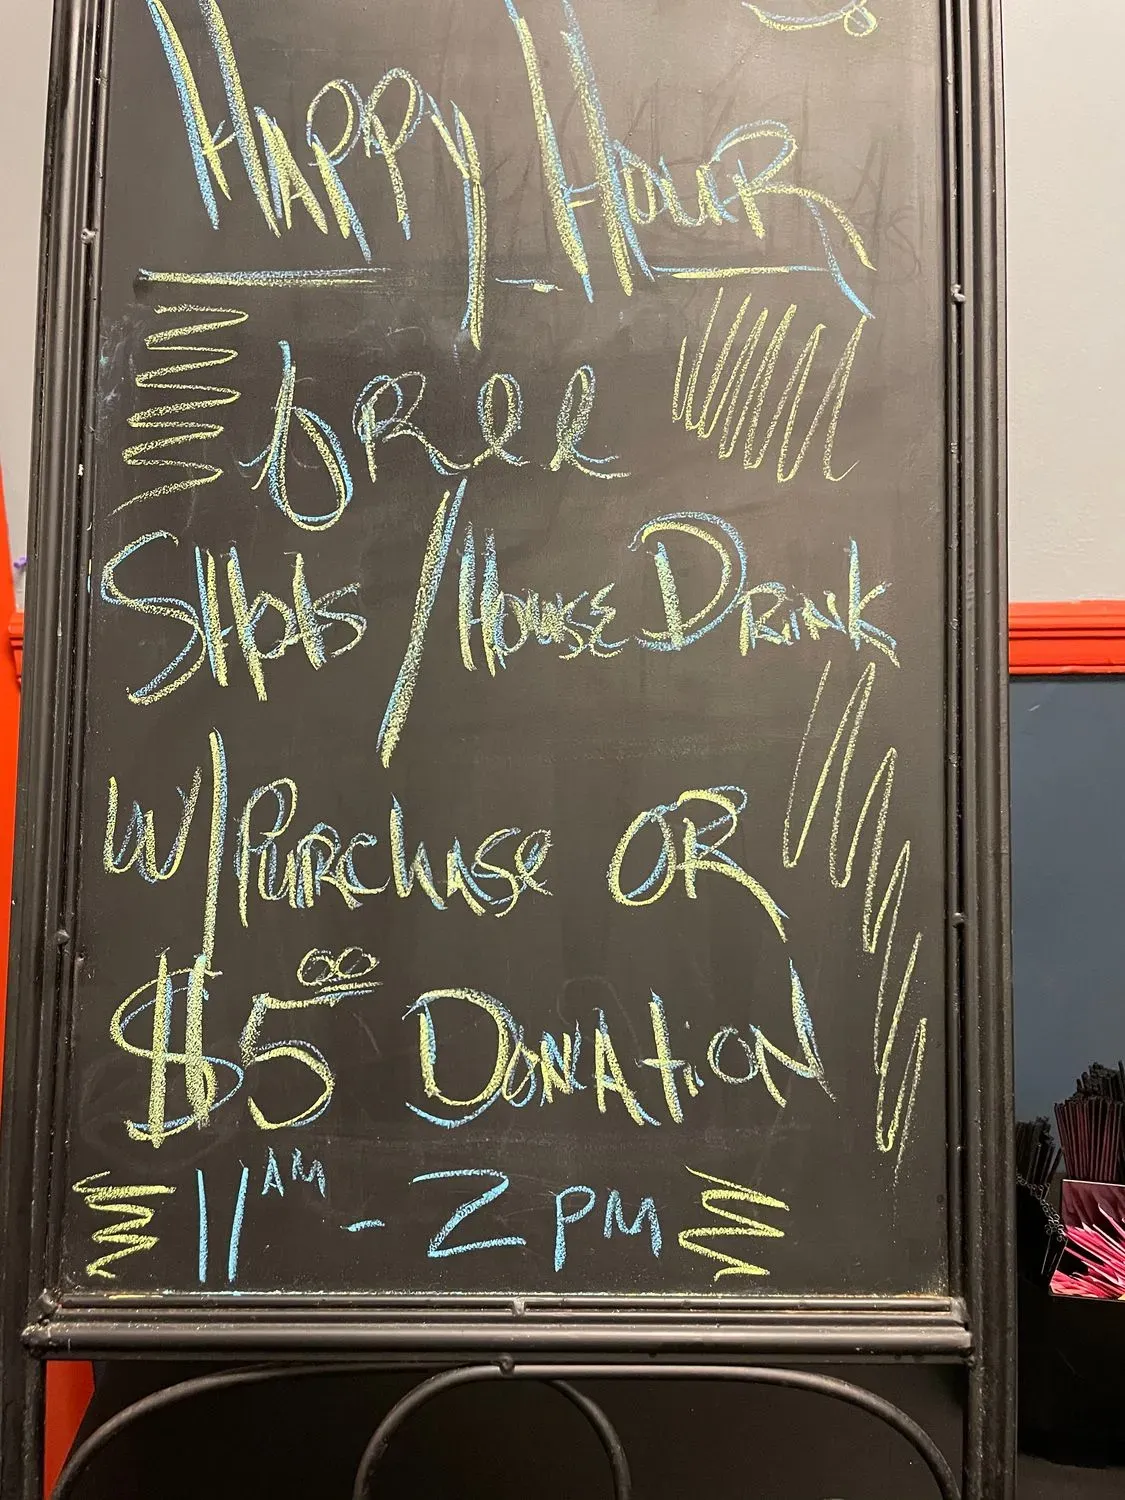 Happy Hour
free
Shots / House Drink
w/ Purchase OR
$5.00 Donation
11AM - 2 PM